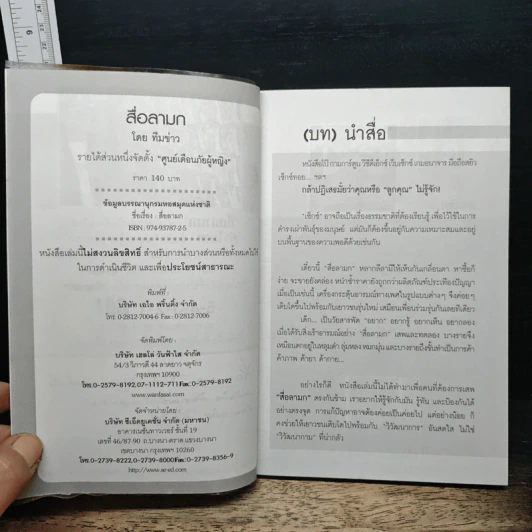 สื่อลามก
โดย ทีมข่าว
รายได้ส่วนหนึ่งจัดตั้ง "ศูนย์เตือนภัยผู้หญิง"
ราคา 140 บาท
ข้อมูลบรรณานุกรมหอสมุดแห่งชาติ
ชื่อเรื่อง : สื่อลามก
ISBN : 974-93787-2-5
หนังสือเล่มนี้ไม่สงวนลิขสิทธิ์ สำหรับการนำบางส่วนหรือทั้งหมดไปใช้
ในการดำเนินชีวิต และเพื่อประโยชน์สาธารณะ
พิมพ์ที่ :
บริษัท เอไอ พริ้นติ้ง จำกัด
โทร. 0-2812-7004-6 Fax : 0-2812-7006
จัดพิมพ์โดย :
บริษัท เฮลโล่ วันฟ้าใส จำกัด
54/3 วิภาวดี 44 ลาดยาว จตุจักร
กรุงเทพฯ 10900
โทร.0-2579-8192,07-1112-711Fax:0-2579-8192
www.wanfasai.com
จัดจำหน่ายโดย :
บริษัท ซีเอ็ดยูเคชั่น จำกัด (มหาชน)
อาคารเนชั่นทาวเวอร์ ชั้นที่ 19
เลขที่ 46/87-90 ถ.บางนา-ตราด แขวงบางนา
เขตบางนา กรุงเทพฯ 10260
โทร.0-2739-8222,0-2739-8000Fax:0-2739-8356-9
http://www.se-ed.com
(บท) นำสื่อ
หนังสือโป๊ เกมการ์ตูน วีซีดีเอ็กซ์ เว็บเซ็กซ์ เกมอนาจาร มือถือสยิว
เซ็กซ์ทอย... ฯลฯ
กล้าปฏิเสธมั้ยว่าคุณหรือ "ลูกคุณ" ไม่รู้จัก!
"เซ็กซ์" อาจถือเป็นเรื่องธรรมชาติที่ต้องเรียนรู้ เพื่อไว้ใช้ในการ
ดำรงเผ่าพันธุ์ของมนุษย์ แต่มันก็ต้องขึ้นอยู่กับความเหมาะสมและอยู่
บนพื้นฐานของความพอดีด้วยเช่นกัน
เดี๋ยวนี้ "สื่อลามก" หลากลีลามีให้เห็นกันเกลื่อนตา หาซื้อก็
ง่าย จะขายยังคล่อง หน้าซ้ำราคายังถูกกว่าผลิตภัณฑ์ประเทืองปัญญา
เมื่อเป็นเช่นนี้ เครื่องกระตุ้นอารมณ์ทางเพศในรูปแบบต่างๆ จึงค่อยๆ
เติบโตขึ้นไปพร้อมกับเยาวชนรุ่นใหม่ เสมือนเพื่อนร่วมรุ่นกันเลยทีเดียว
เด็ก... เป็นวัยสารพัด "อยาก" อยากรู้ อยากเห็น อยากลอง
เมื่อได้รับสิ่งเร้าอารมณ์อย่าง "สื่อลามก" เสพและทดลอง บางรายจึง
เหมือนตกอยู่ในหลุมดำ ลุ่มหลง หมกมุ่น และบางรายถึงขั้นทำเป็นการค้า
ค้าภาพ ค้ายา ค้ากาย...
อย่างไรก็ดี หนังสือเล่มนี้ไม่ได้ทำมาเพื่อคนที่ต้องการเสพ
"สื่อลามก" ตรงกันข้าม เราอยากให้รู้จักกับมัน รู้ทัน และป้องกันได้
อย่างตรงจุด การแก้ปัญหาอาจต้องค่อยเป็นค่อยไป แต่อย่างน้อย ก็
คงช่วยให้เยาวชนเติบโตไปพร้อมกับ "วิวัฒนาการ" อันสดใส ไม่ใช่
"วิวัฒนากาม" ที่น่ากลัว
9